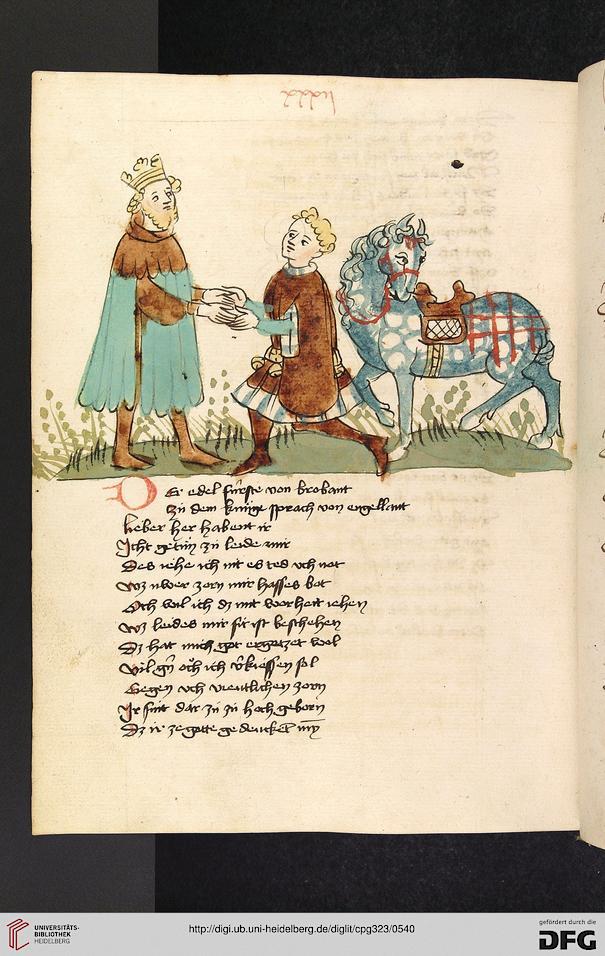 Er edel fürste von brobant
zü dem künige sprach von engellant
lieber her habent ir
Jcht getün zü leide mir
Des iehe ich nit es ted uch not
wz uwer zorn mir hasses bot
Och wil ich dz mit worheit iehen
wz leides mir sit ist beschehen
Dz hat mich got ergetzet wol
vil gern och ich verkiessen sol
Gegen uch vientlichen zorn
Jr sint dar zü zü hoch geborn
Dz ir ze gotte gedencket
UNIVERSITÄTS-
BIBLIOTHEK
HEIDELBERG
http://digi.ub.uni-heidelberg.de/diglit/cpg323/0540
gefördert durch die
DFG